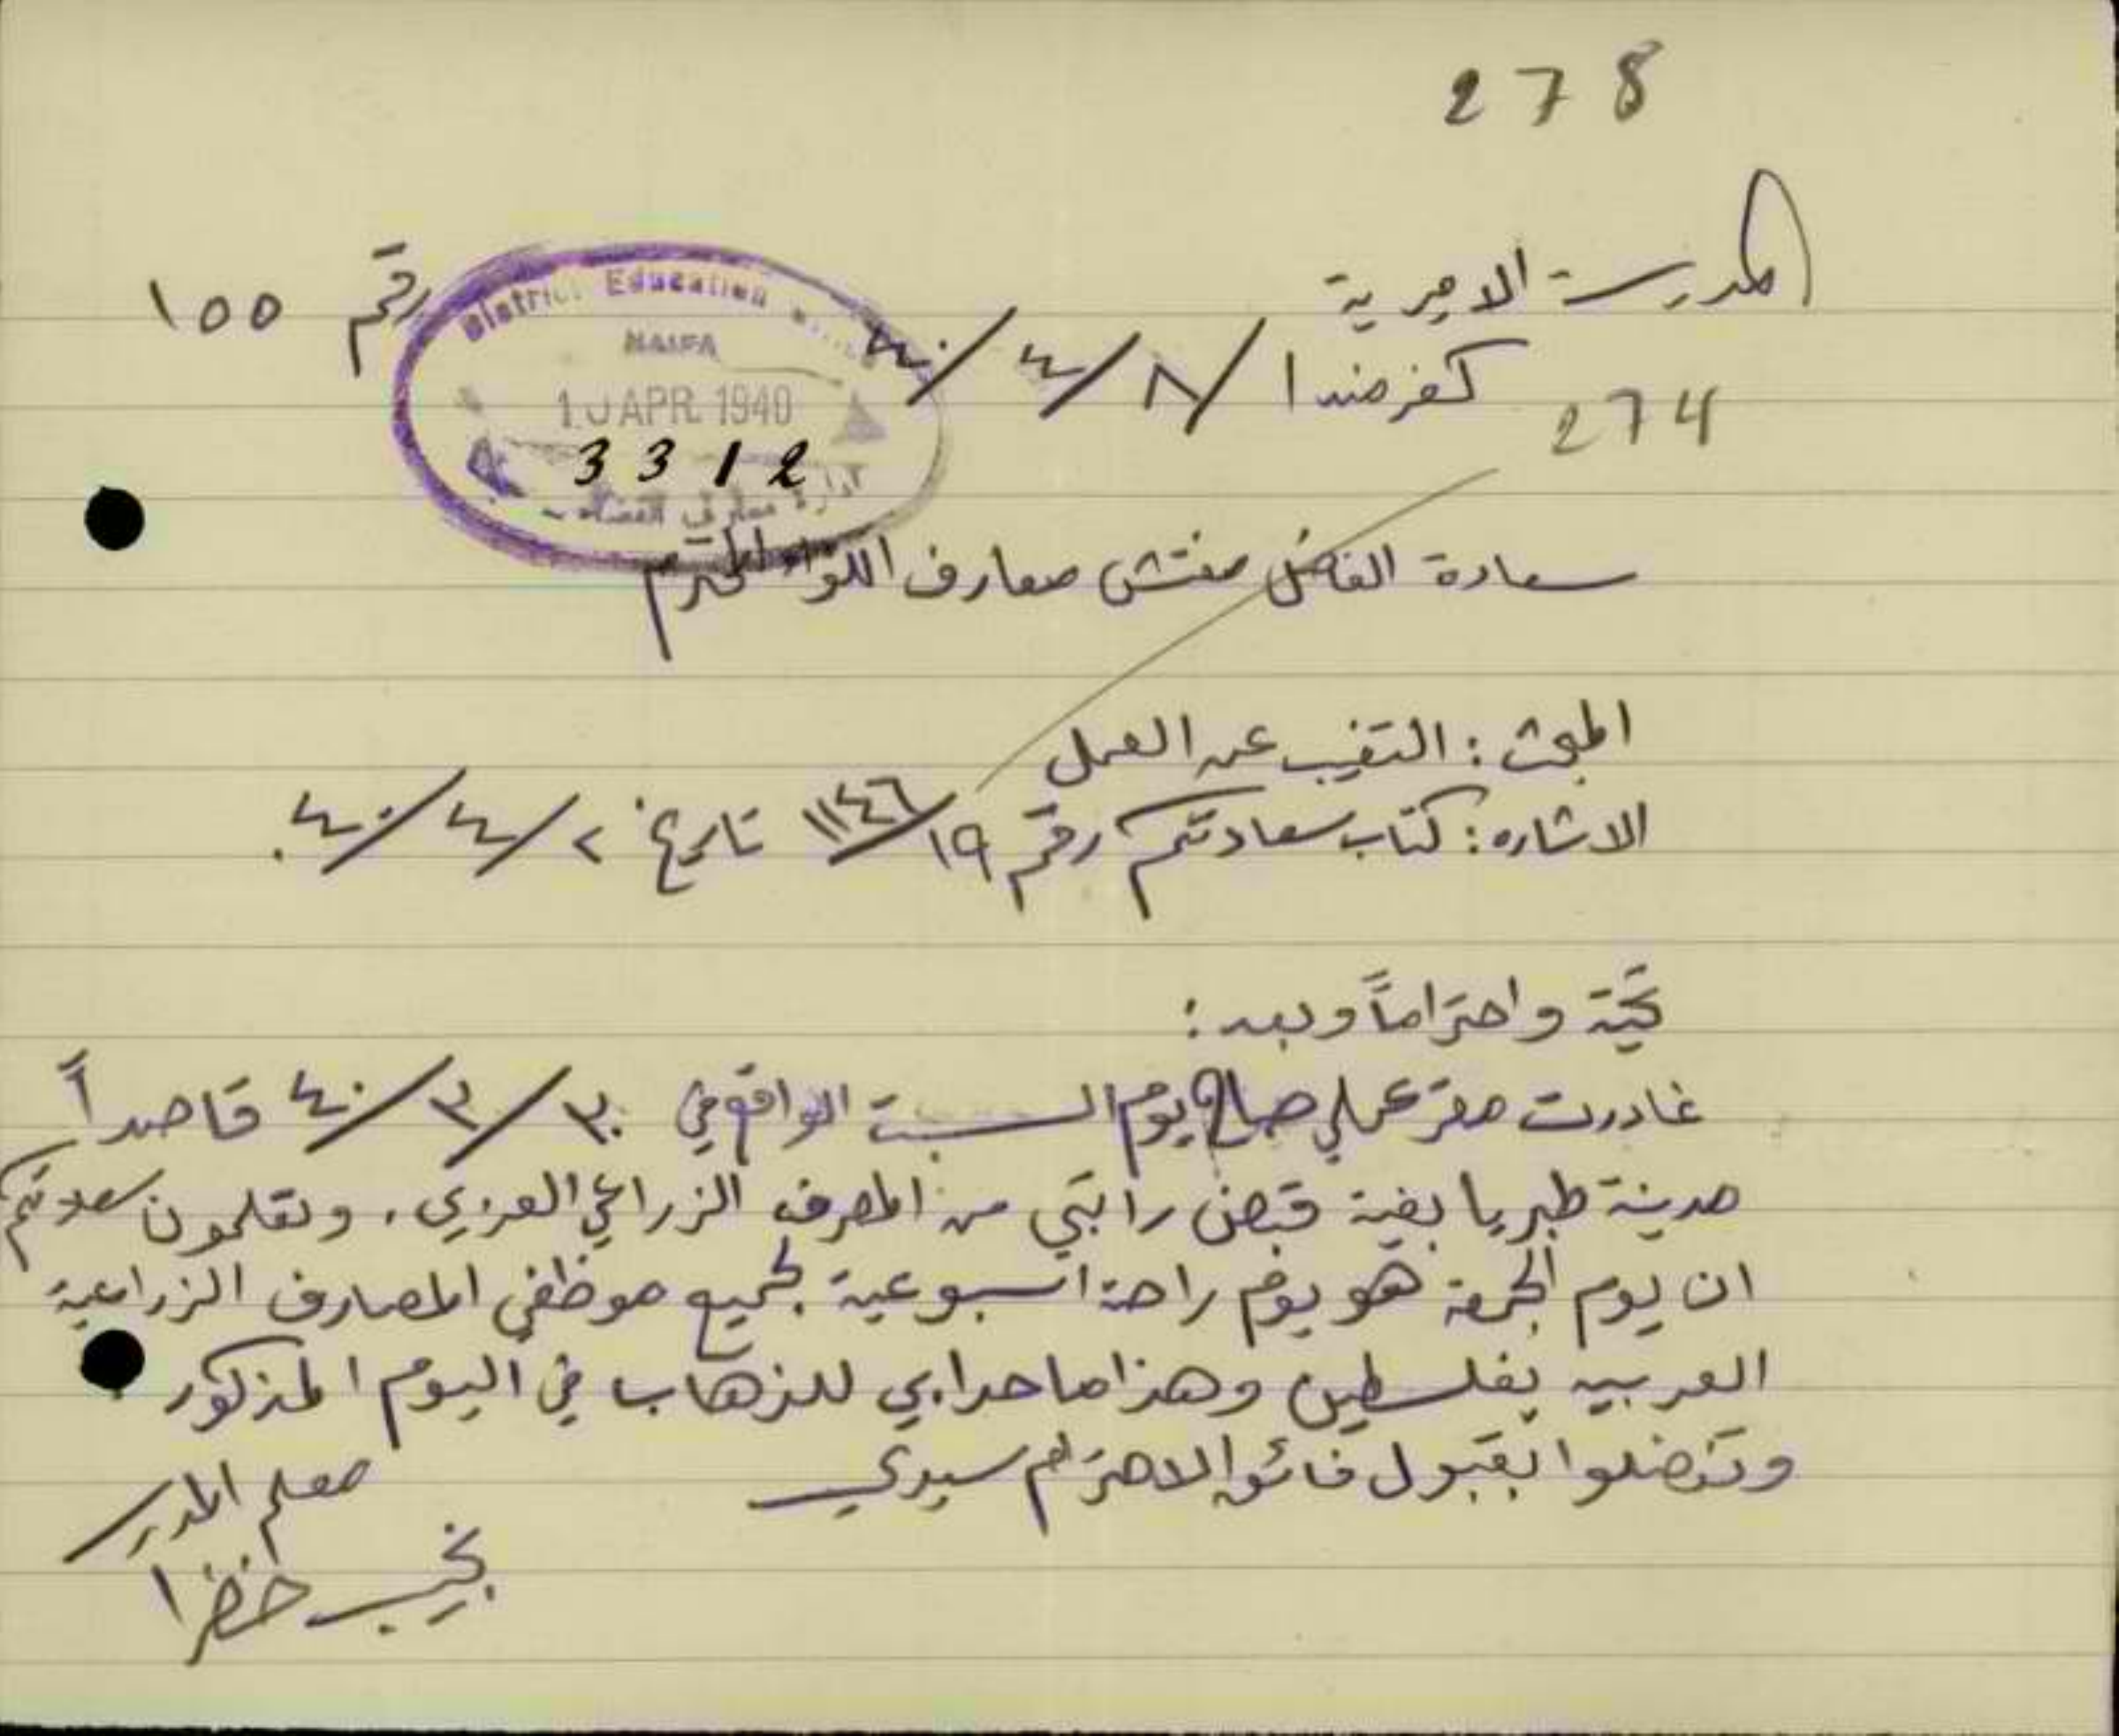 278
المدرسة الاميرية
رقم ١٥٥
كفرمندا ٨/٤/٤٠
274
District Education
HAIFA
10 APR 1940
3312
ادارة معارف القضاء
سعادة الفاضل مفتش معارف اللواء المحترم
المبحث : التغيب عن العمل
الاشاره : كتاب سعادتكم رقم ١١٤٦/١٩ تاريخ ٢/٤/٤٠.
تحية واحتراماً وبعد :
غادرت مقر عملي صباح يوم السبت الواقع في ٣٠/٣/٤٠ قاصداً
مدينة طبريا بغية قبض راتبي من المصرف الزراعي العربي . وتعلمون سعادتكم
ان يوم الجمعة هو يوم راحة اسبوعية لجميع موظفي المصارف الزراعية
العربيه بفلسطين وهذا ما حدا بي للذهاب في اليوم المذكور .
وتفضلوا بقبول فائق الاحترام سيدي
معلم المدرسة
نجيب خضرا